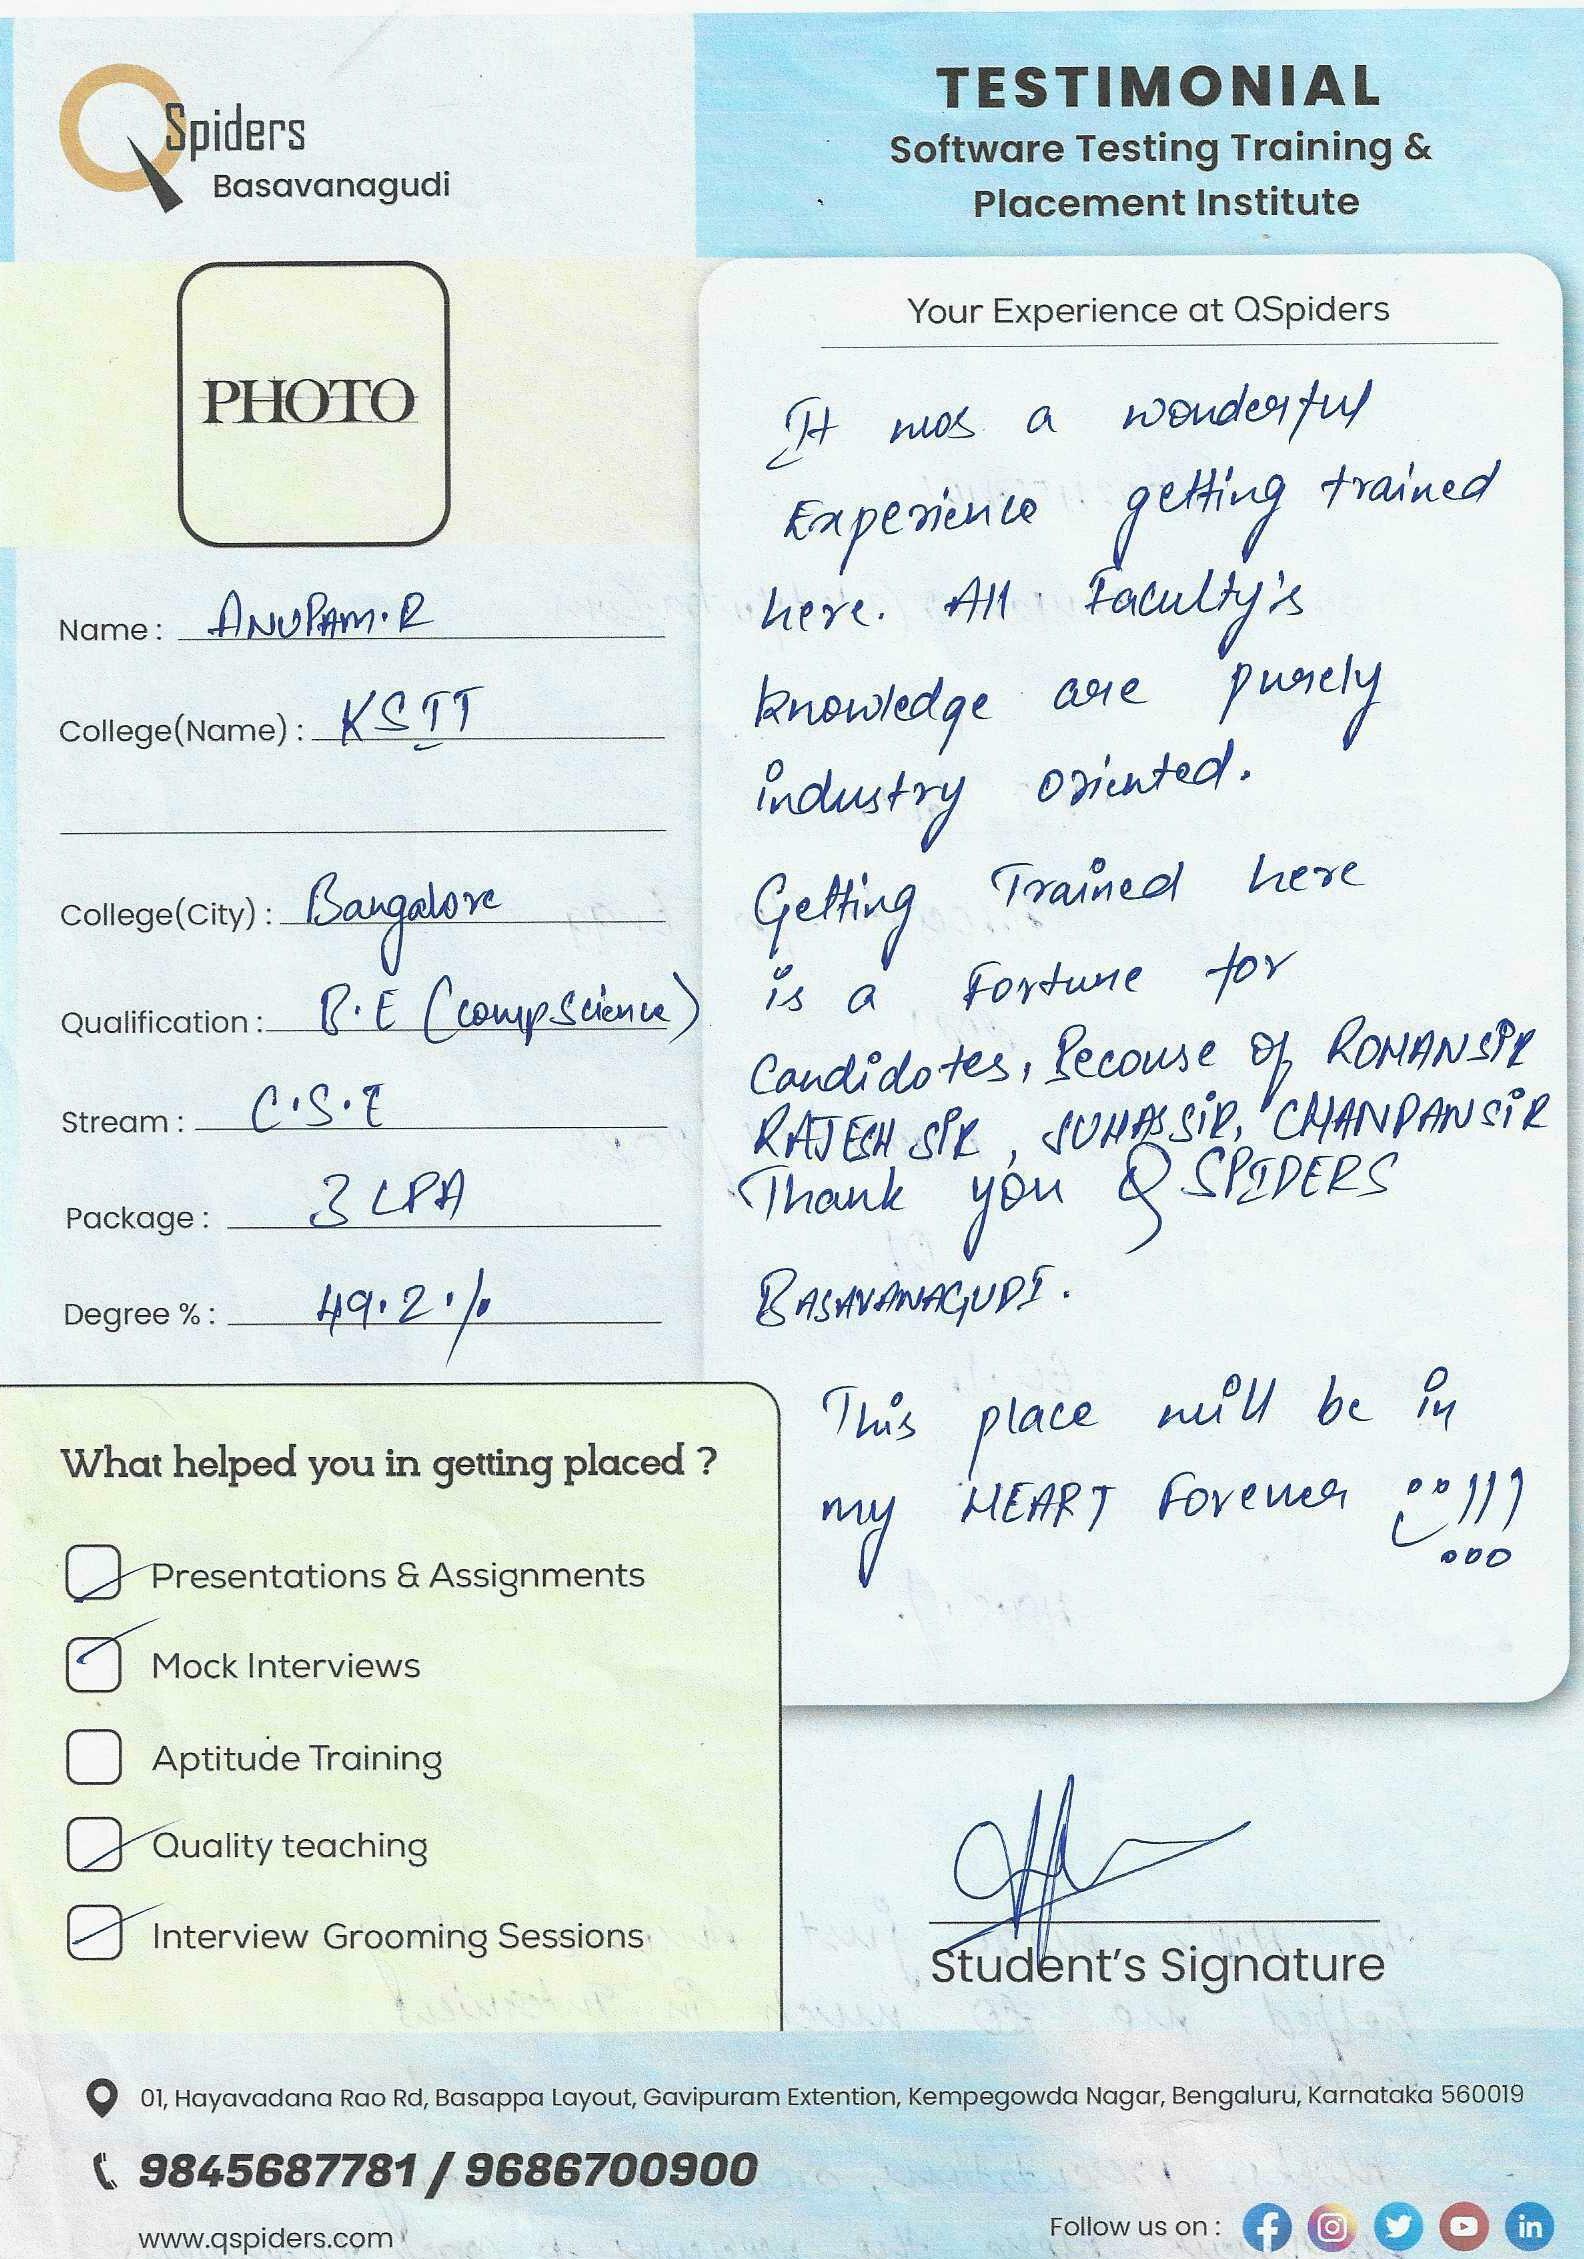 QSpiders
Basavanagudi
TESTIMONIAL
Software Testing Training &
Placement Institute
PHOTO
Name : ANUPAM.R
College(Name) : KSIT
College(City) : Bangalore
Qualification : B.E (Comp Science)
Stream : C.S.E
Package : 3 LPA
Degree % : 49.2 %
Your Experience at QSpiders
It was a wonderful
Experience getting trained
here. All Faculty's
knowledge are purely
industry oriented.
Getting Trained here
is a Fortune for
Candidates, Because of ROHAN SIR
RAJESH SIR, SUHAS SIR, CHANDAN SIR
Thank you QSPIDERS
BASAVANAGUDI.
This place will be in
my HEART Forever !!!
What helped you in getting placed ?
Presentations & Assignments
Mock Interviews
Aptitude Training
Quality teaching
Interview Grooming Sessions
Student's Signature
01, Hayavadana Rao Rd, Basappa Layout, Gavipuram Extention, Kempegowda Nagar, Bengaluru, Karnataka 560019
9845687781 / 9686700900
www.qspiders.com
Follow us on :